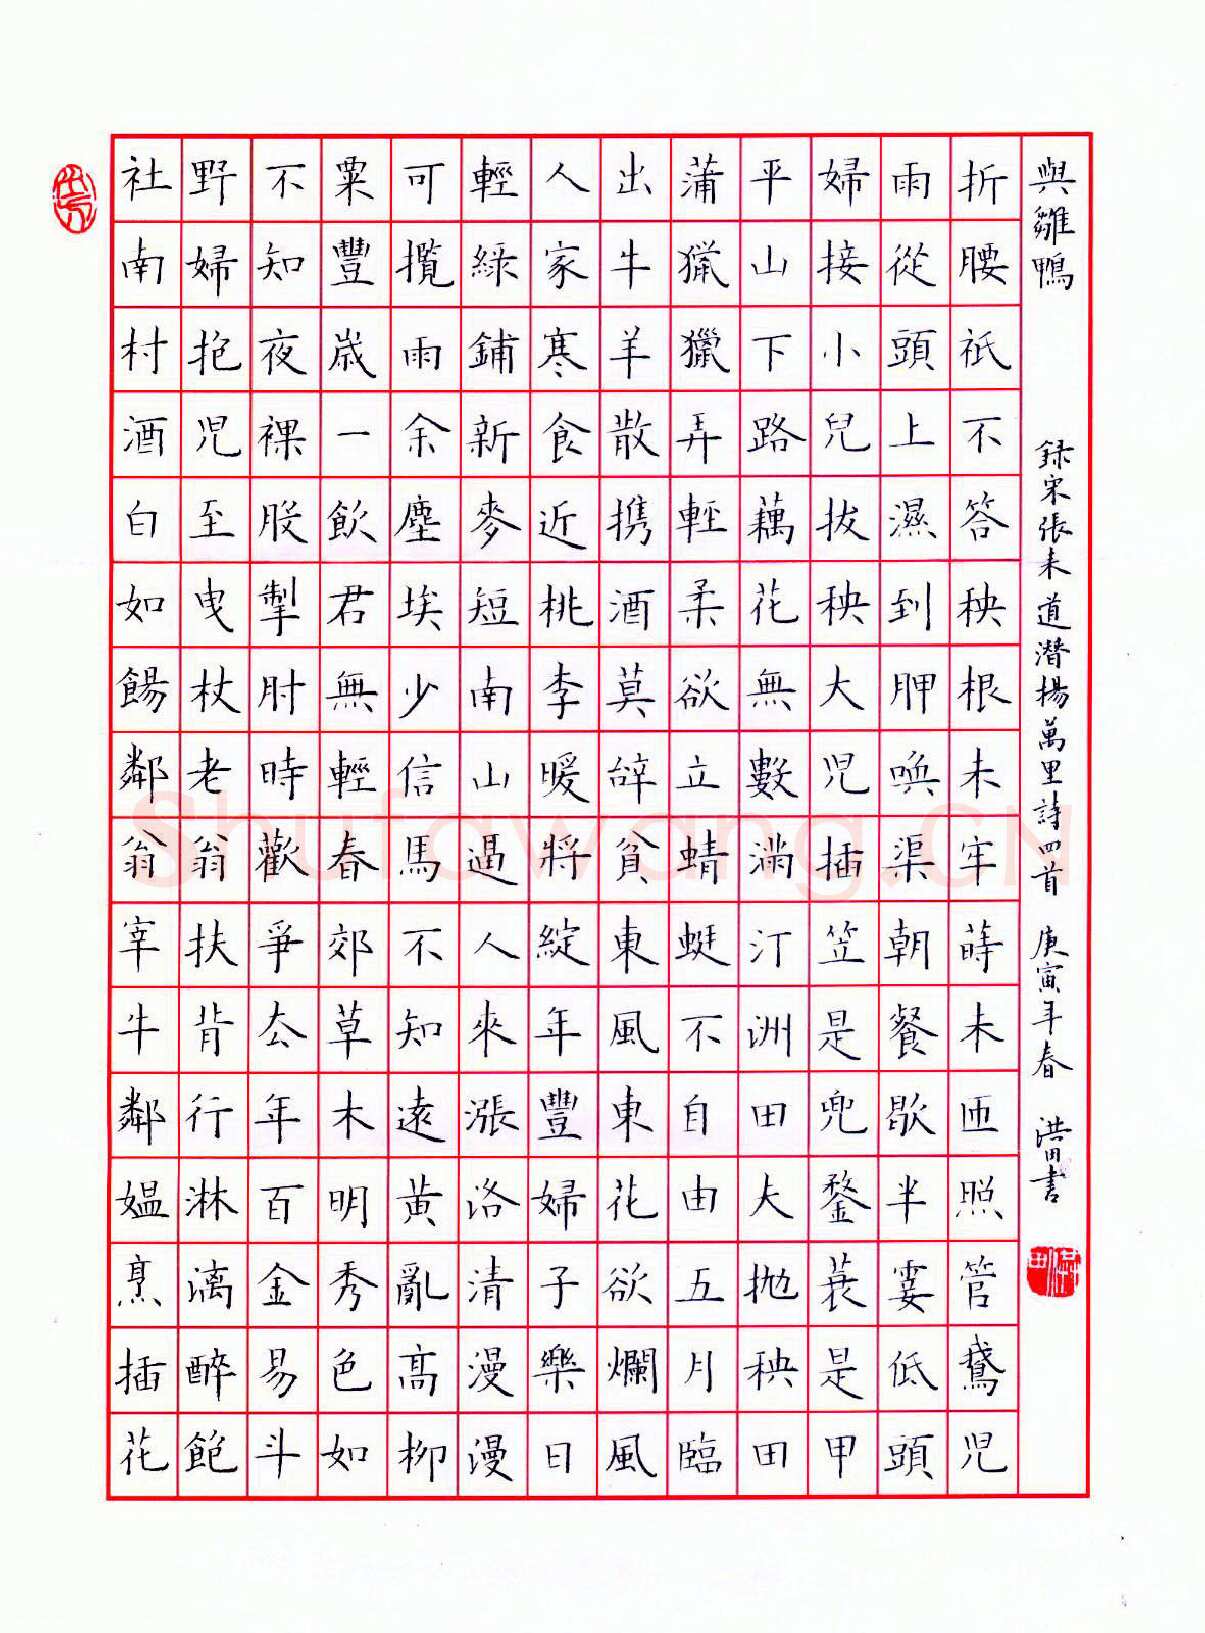 社南村酒白如餳鄰翁宰牛鄰媼烹插花
野婦抱児至曳杖老翁扶背行淋漓醉飽
不知夜裸股掣肘時歡爭厺年百金易斗
粟豐歲一飲君無輕春郊草木明秀色如
可攬雨余塵埃少信馬不知遠黄亂高柳
輕綠鋪新麥短南山逼人來漲洛清漫漫
人家寒食近桃李暖將綻年豐婦子樂日
出牛羊散携酒莫辞貧東風東花欲爛風
蒲獵獵弄輕柔欲立蜻蜓不自由五月臨
平山下路藕花無數滿汀洲田夫抛秧田
婦接小兒拔秧大児插笠是兜鍪蓑是甲
雨從頭上濕到胛喚渠朝餐歇半霎低頭
折腰祇不答秧根未牢蒔未匝照管鵞児
與雛鴨 録宋張耒道潛楊萬里詩四首 庚寅年春 浩田書
Shufawang.CN